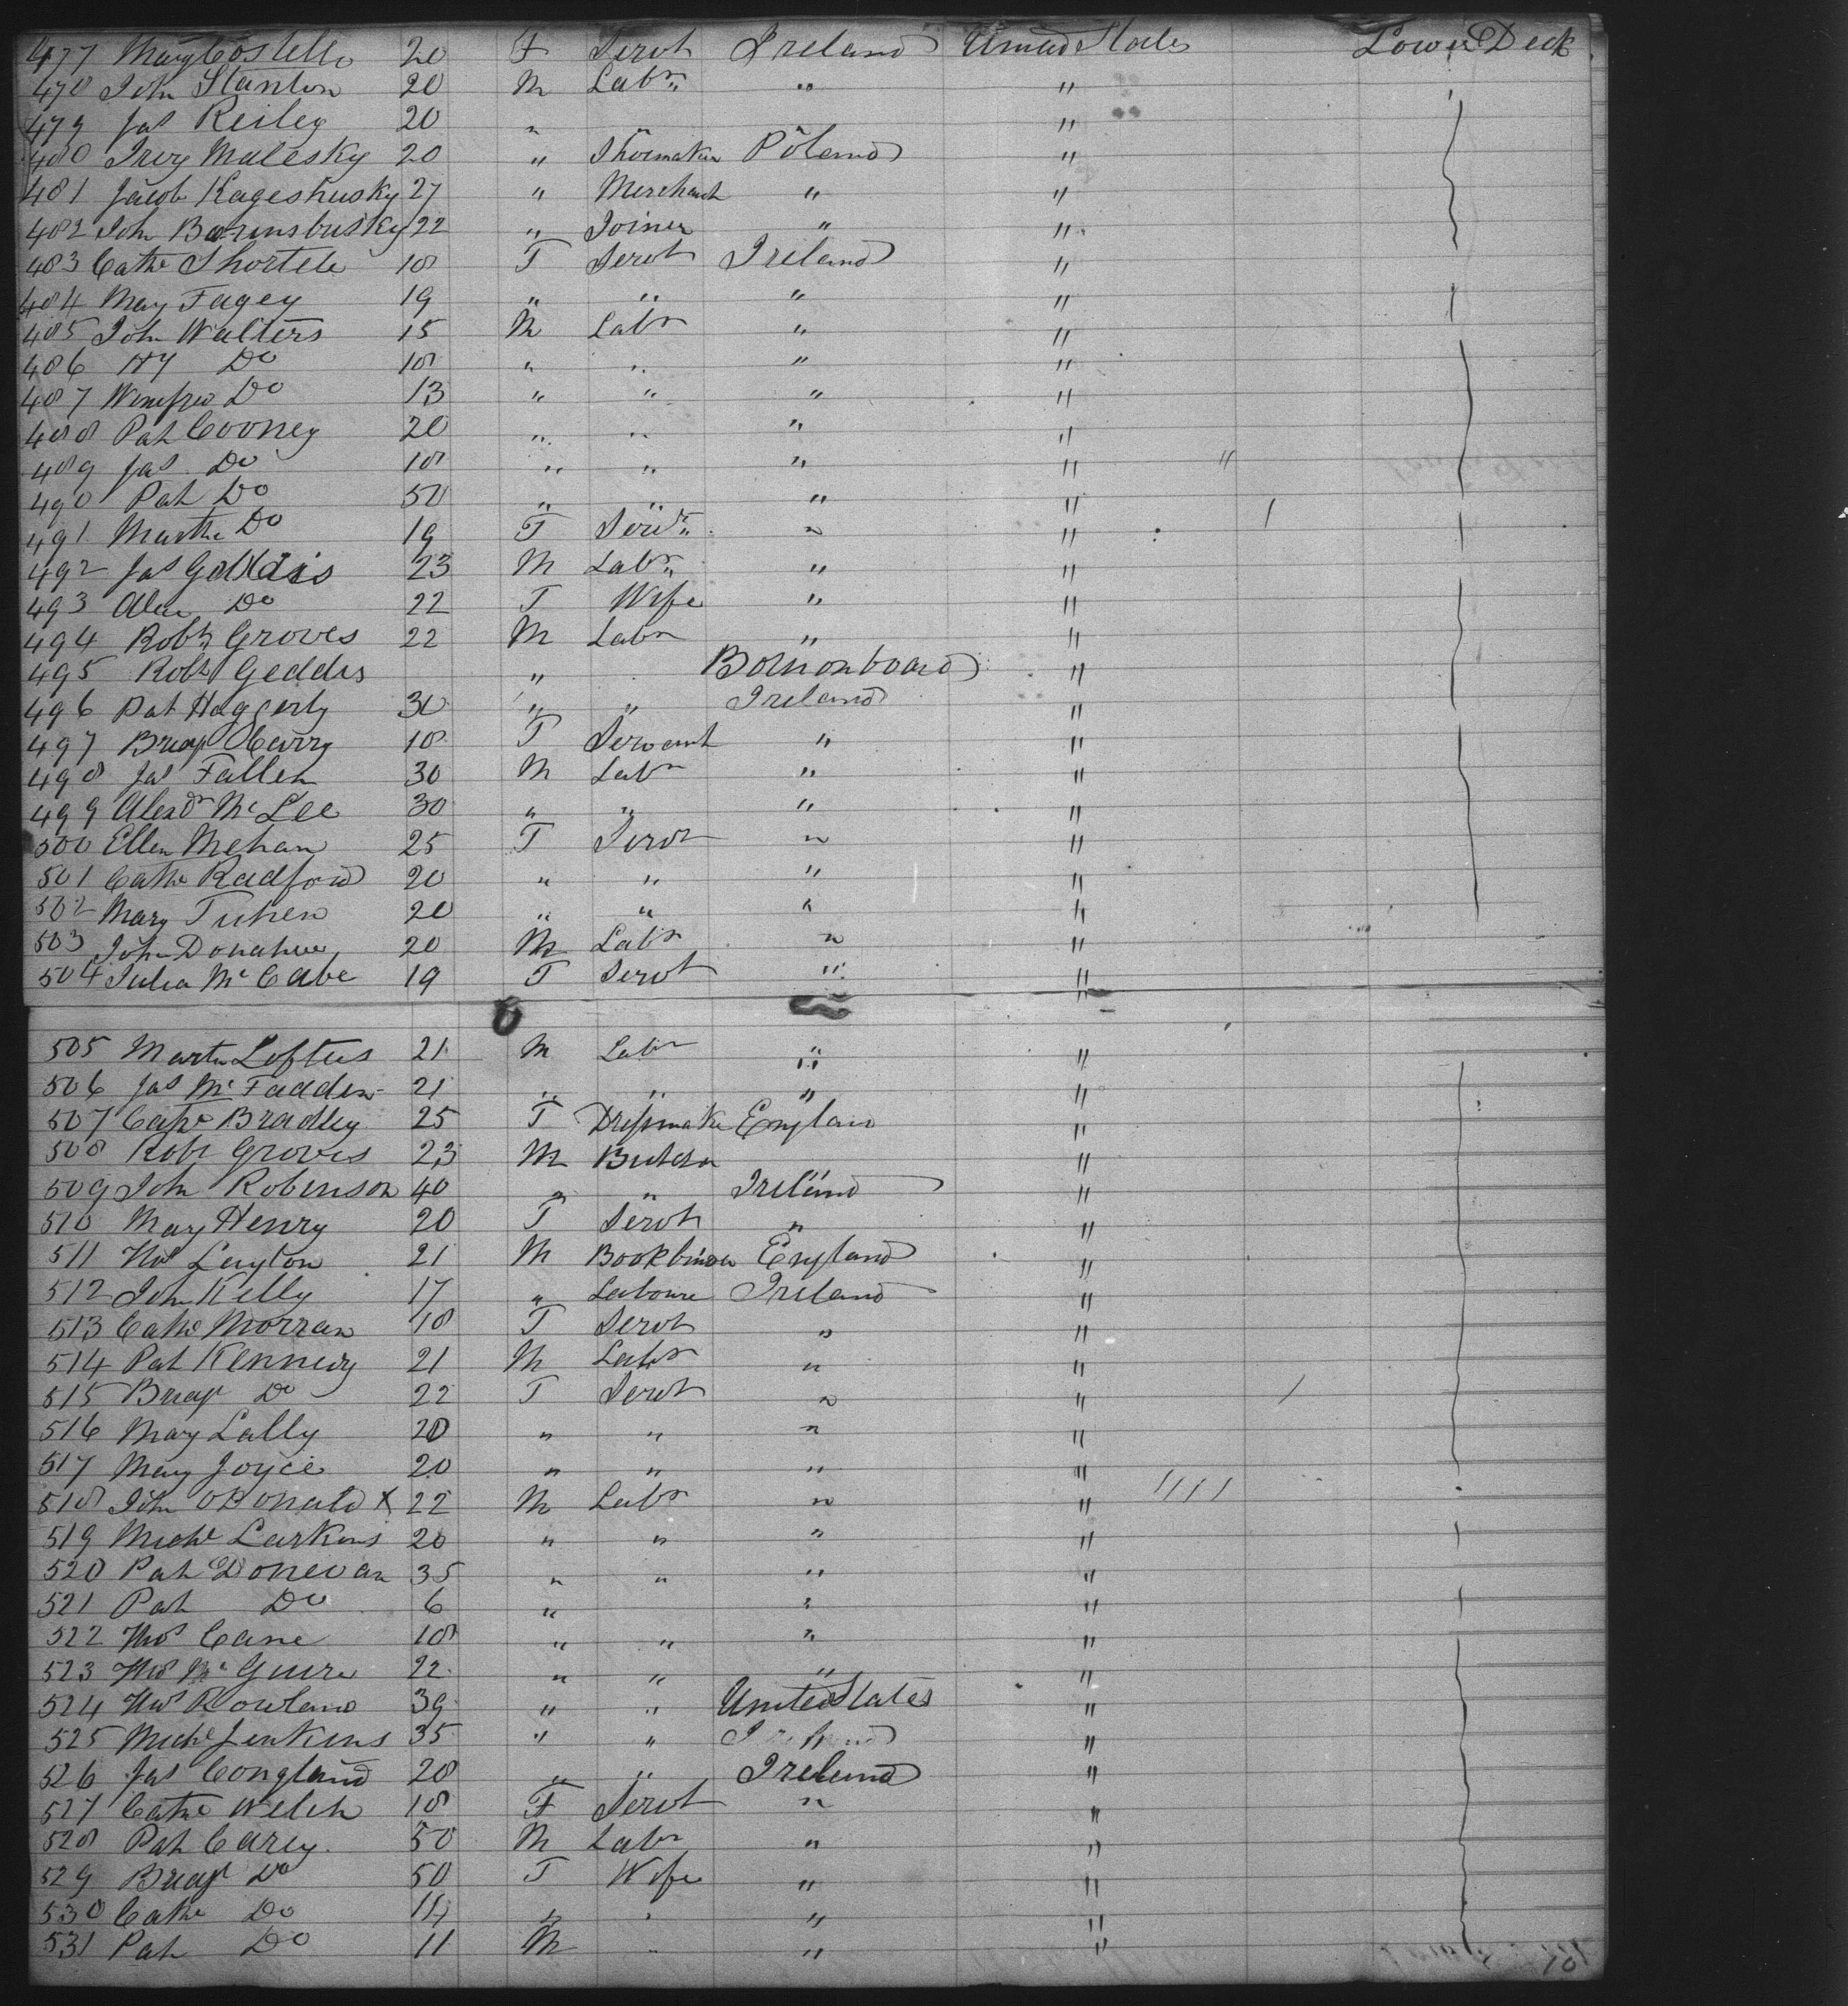 477 Mary Costello 20 F Servt Ireland United States Lower Deck
478 John Stanton 20 M Labr " "
479 Jas Reiley 20 " " " "
480 Malesky 20 " Shoemaker Poland "
481 Jacob 27 " Merchant " "
482 John 22 " Joiner " "
483 Cathe Shortele 18 F Servt Ireland "
484 Mary Fagey 19 " " " "
485 John Walters 15 M Labr " "
486 Hy Do 18 " " " "
487 Winefred Do 13 " " " "
488 Pat Cooney 20 " " " "
489 Jas Do 18 " " " " "
490 Pat Do 50 " " " "
491 Martha Do 19 F Servt " "
492 Jas Geddis 23 M Labr " "
493 Do 22 F Wife " "
494 Robt Groves 22 M Labr " "
495 Robt Geddis " Born on board "
496 Pat Haggerty 30 " " Ireland "
497 Bridgt 18 F Servant " "
498 Jas Fallen 30 M Labr " "
499 Alexdr McLee 30 " " " "
500 Ellen Mehan 25 F Servt " "
501 Cathe Radford 20 " " " "
502 Mary 20 " " " "
503 John Donahue 20 M Labr " "
504 Julia McCabe 19 F Servt " "
505 Martin Loftus 21 M Labr " "
506 Jas McFadden 21 " " " "
507 Cathe Bradley 25 F Dressmaker England "
508 Robt Groves 23 M Butcher "
509 John Robinson 40 " " Ireland "
510 Mary Henry 20 F Servt " "
511 Thos Layton 21 M Bookbinder England "
512 John Kelly 17 " Laboure Ireland "
513 Cathe Morran 18 F Servt " "
514 Pat Kennedy 21 M Labr " "
515 Bridgt Do 22 F Servt " "
516 Mary Lally 20 " " " "
517 Mary Joyce 20 " " " "
518 John O Donald X 22 M Labr " "
519 Michl Larkins 20 " " " "
520 Pat Donevan 35 " " " "
521 Pat Do 6 " " "
522 Thos Cane 18 " " " "
523 Thos McGuire 22 " " " "
524 Thos Rowland 39 " " United States "
525 Michl Jenkins 35 " " Ireland "
526 Jas Congland 28 " " Ireland "
527 Cathe Welch 18 F Servt " "
528 Pat Carey 50 M Labr " "
529 Bridgt Do 50 F Wife " "
530 Cathe Do 14 " " " "
531 Pat Do 11 M " " "